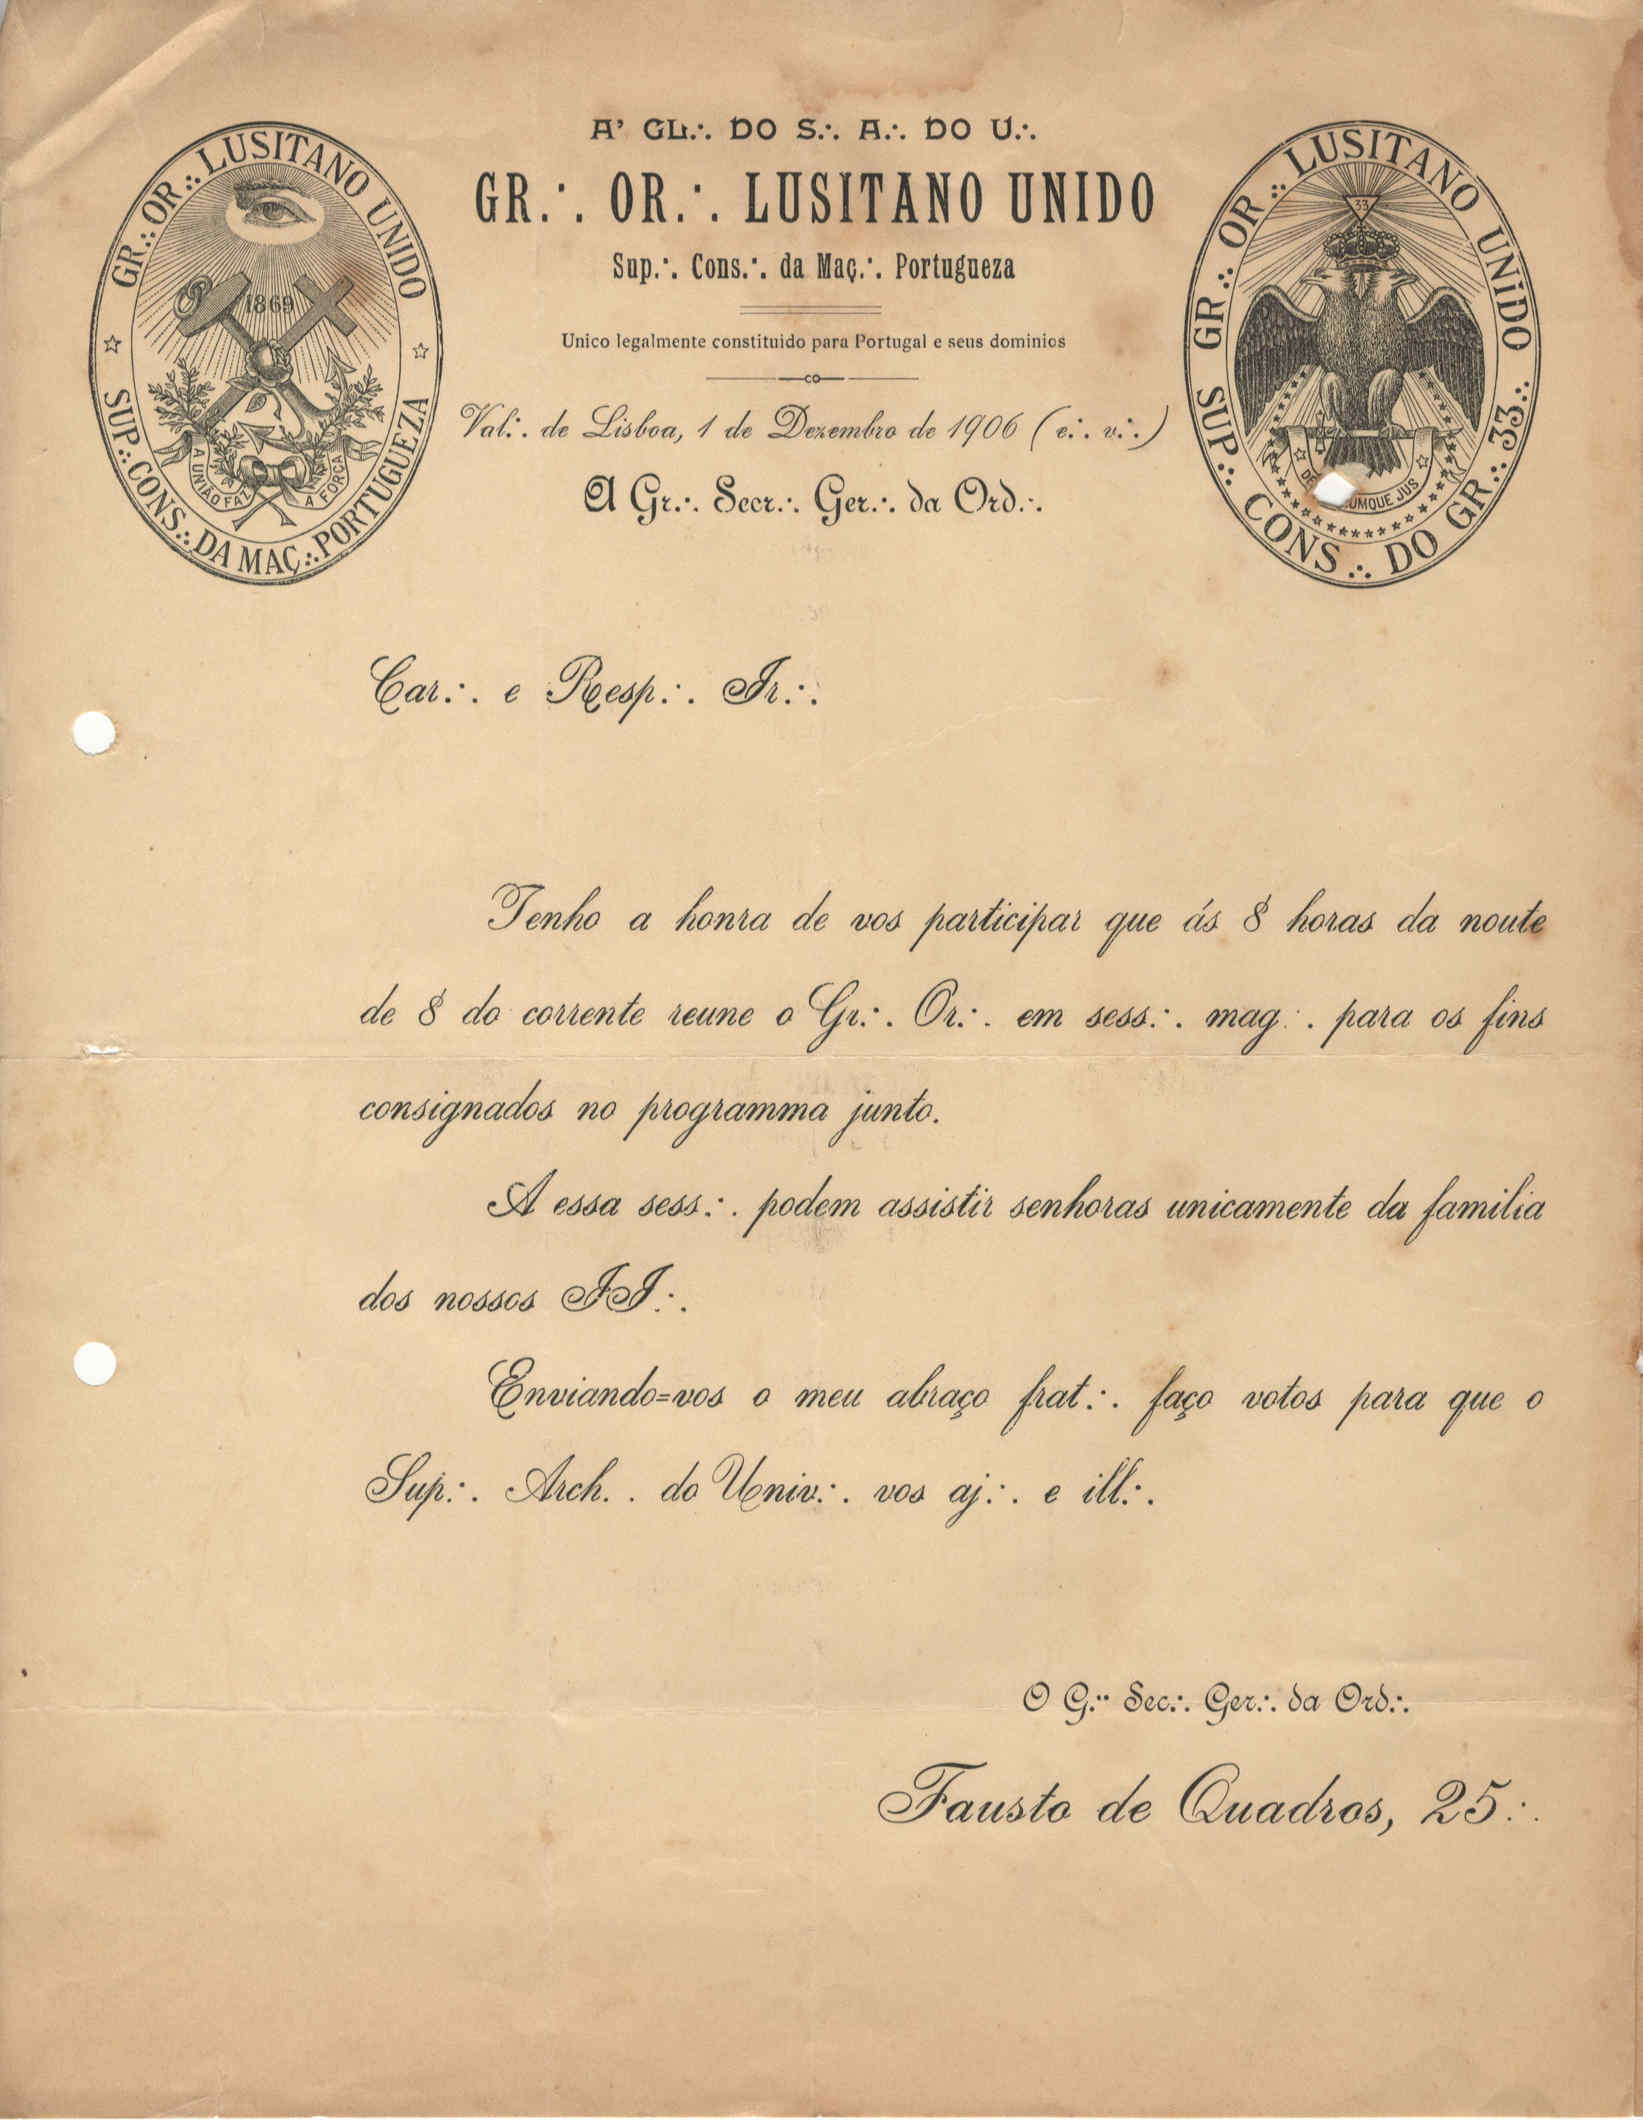 A' GL∴ DO S∴ A∴ DO U∴
GR∴ OR∴ LUSITANO UNIDO
Sup∴ Cons∴ da Maç∴ Portugueza
Unico legalmente constituido para Portugal e seus dominios
Val∴ de Lisboa, 1 de Dezembro de 1906 (e∴ v∴)
A Gr∴ Secr∴ Ger∴ da Ord∴
GR∴ OR∴ LUSITANO UNIDO
SUP∴ CONS∴ DA MAÇ∴ PORTUGUEZA
1869
A UNIÃO FAZ A FORÇA
GR∴ OR∴ LUSITANO UNIDO
SUP∴ CONS∴ DO GR∴ 33∴
33
JUS
Car∴ e Resp∴ Ir∴
Tenho a honra de vos participar que ás 8 horas da noute
de 8 do corrente reune o Gr∴ Or∴ em sess∴ mag∴ para os fins
consignados no programma junto.
A essa sess∴ podem assistir senhoras unicamente da familia
dos nossos II∴
Enviando=vos o meu abraço frat∴ faço votos para que o
Sup∴ Arch∴ do Univ∴ vos aj∴ e ill∴
O G∴ Sec∴ Ger∴ da Ord∴
Fausto de Quadros, 25∴